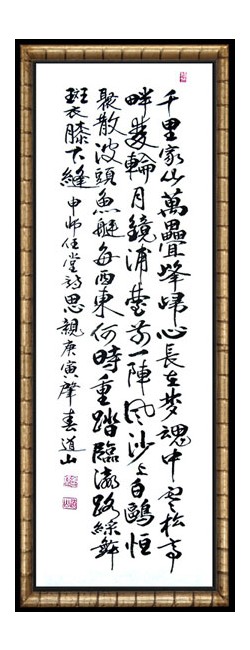 千里家山萬疊峰歸心長在夢魂中寒松亭
畔雙輪月鏡浦臺前一陣風沙上白鷗恒
聚散波頭魚艇每西東何時重踏臨瀛路綵舞
斑衣膝下縫 申師任堂詩思親 庚寅肇春道山